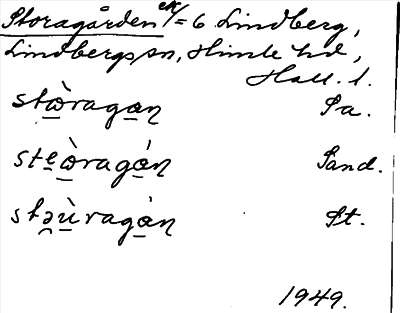 Storagården ek/=6 Lindberg,
Lindbergs sn, Himle hd,
Hall. l.
stὼ̲ragα̲ɳ Sa.
ste̲ὼ̲ragά̲ɳ Sand.
stə̯ù̲ragά̲ɳ St.
1949.